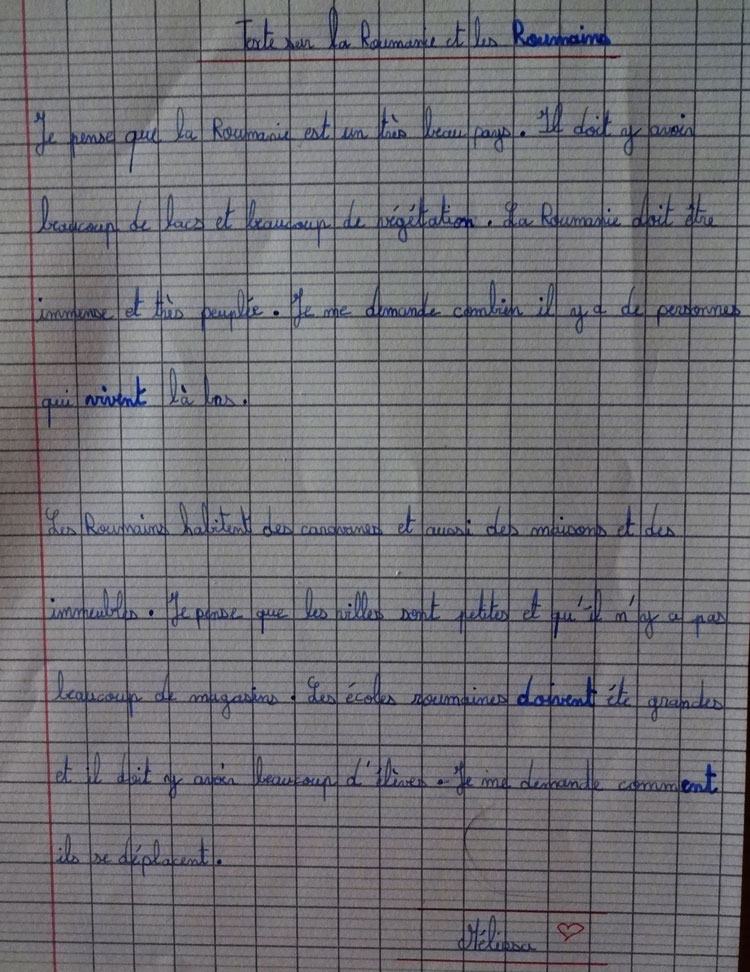 Texte sur la Roumanie et les Roumains
Je pense que la Roumanie est un très beau pays. Il doit y avoir
beaucoup de lacs et beaucoup de végétation. La Roumanie doit être
immense et très peuplée. Je me demande combien il y a de personnes
qui vivent là bas.
Les Roumains habitent des caravanes et aussi des maisons et des
immeubles. Je pense que les villes sont petites et qu'il n'y a pas
beaucoup de magasins. Les écoles roumaines doivent éte grandes
et il doit y avoir beaucoup d'élèves. Je me demande comment
ils se déplacent.
Mélissa